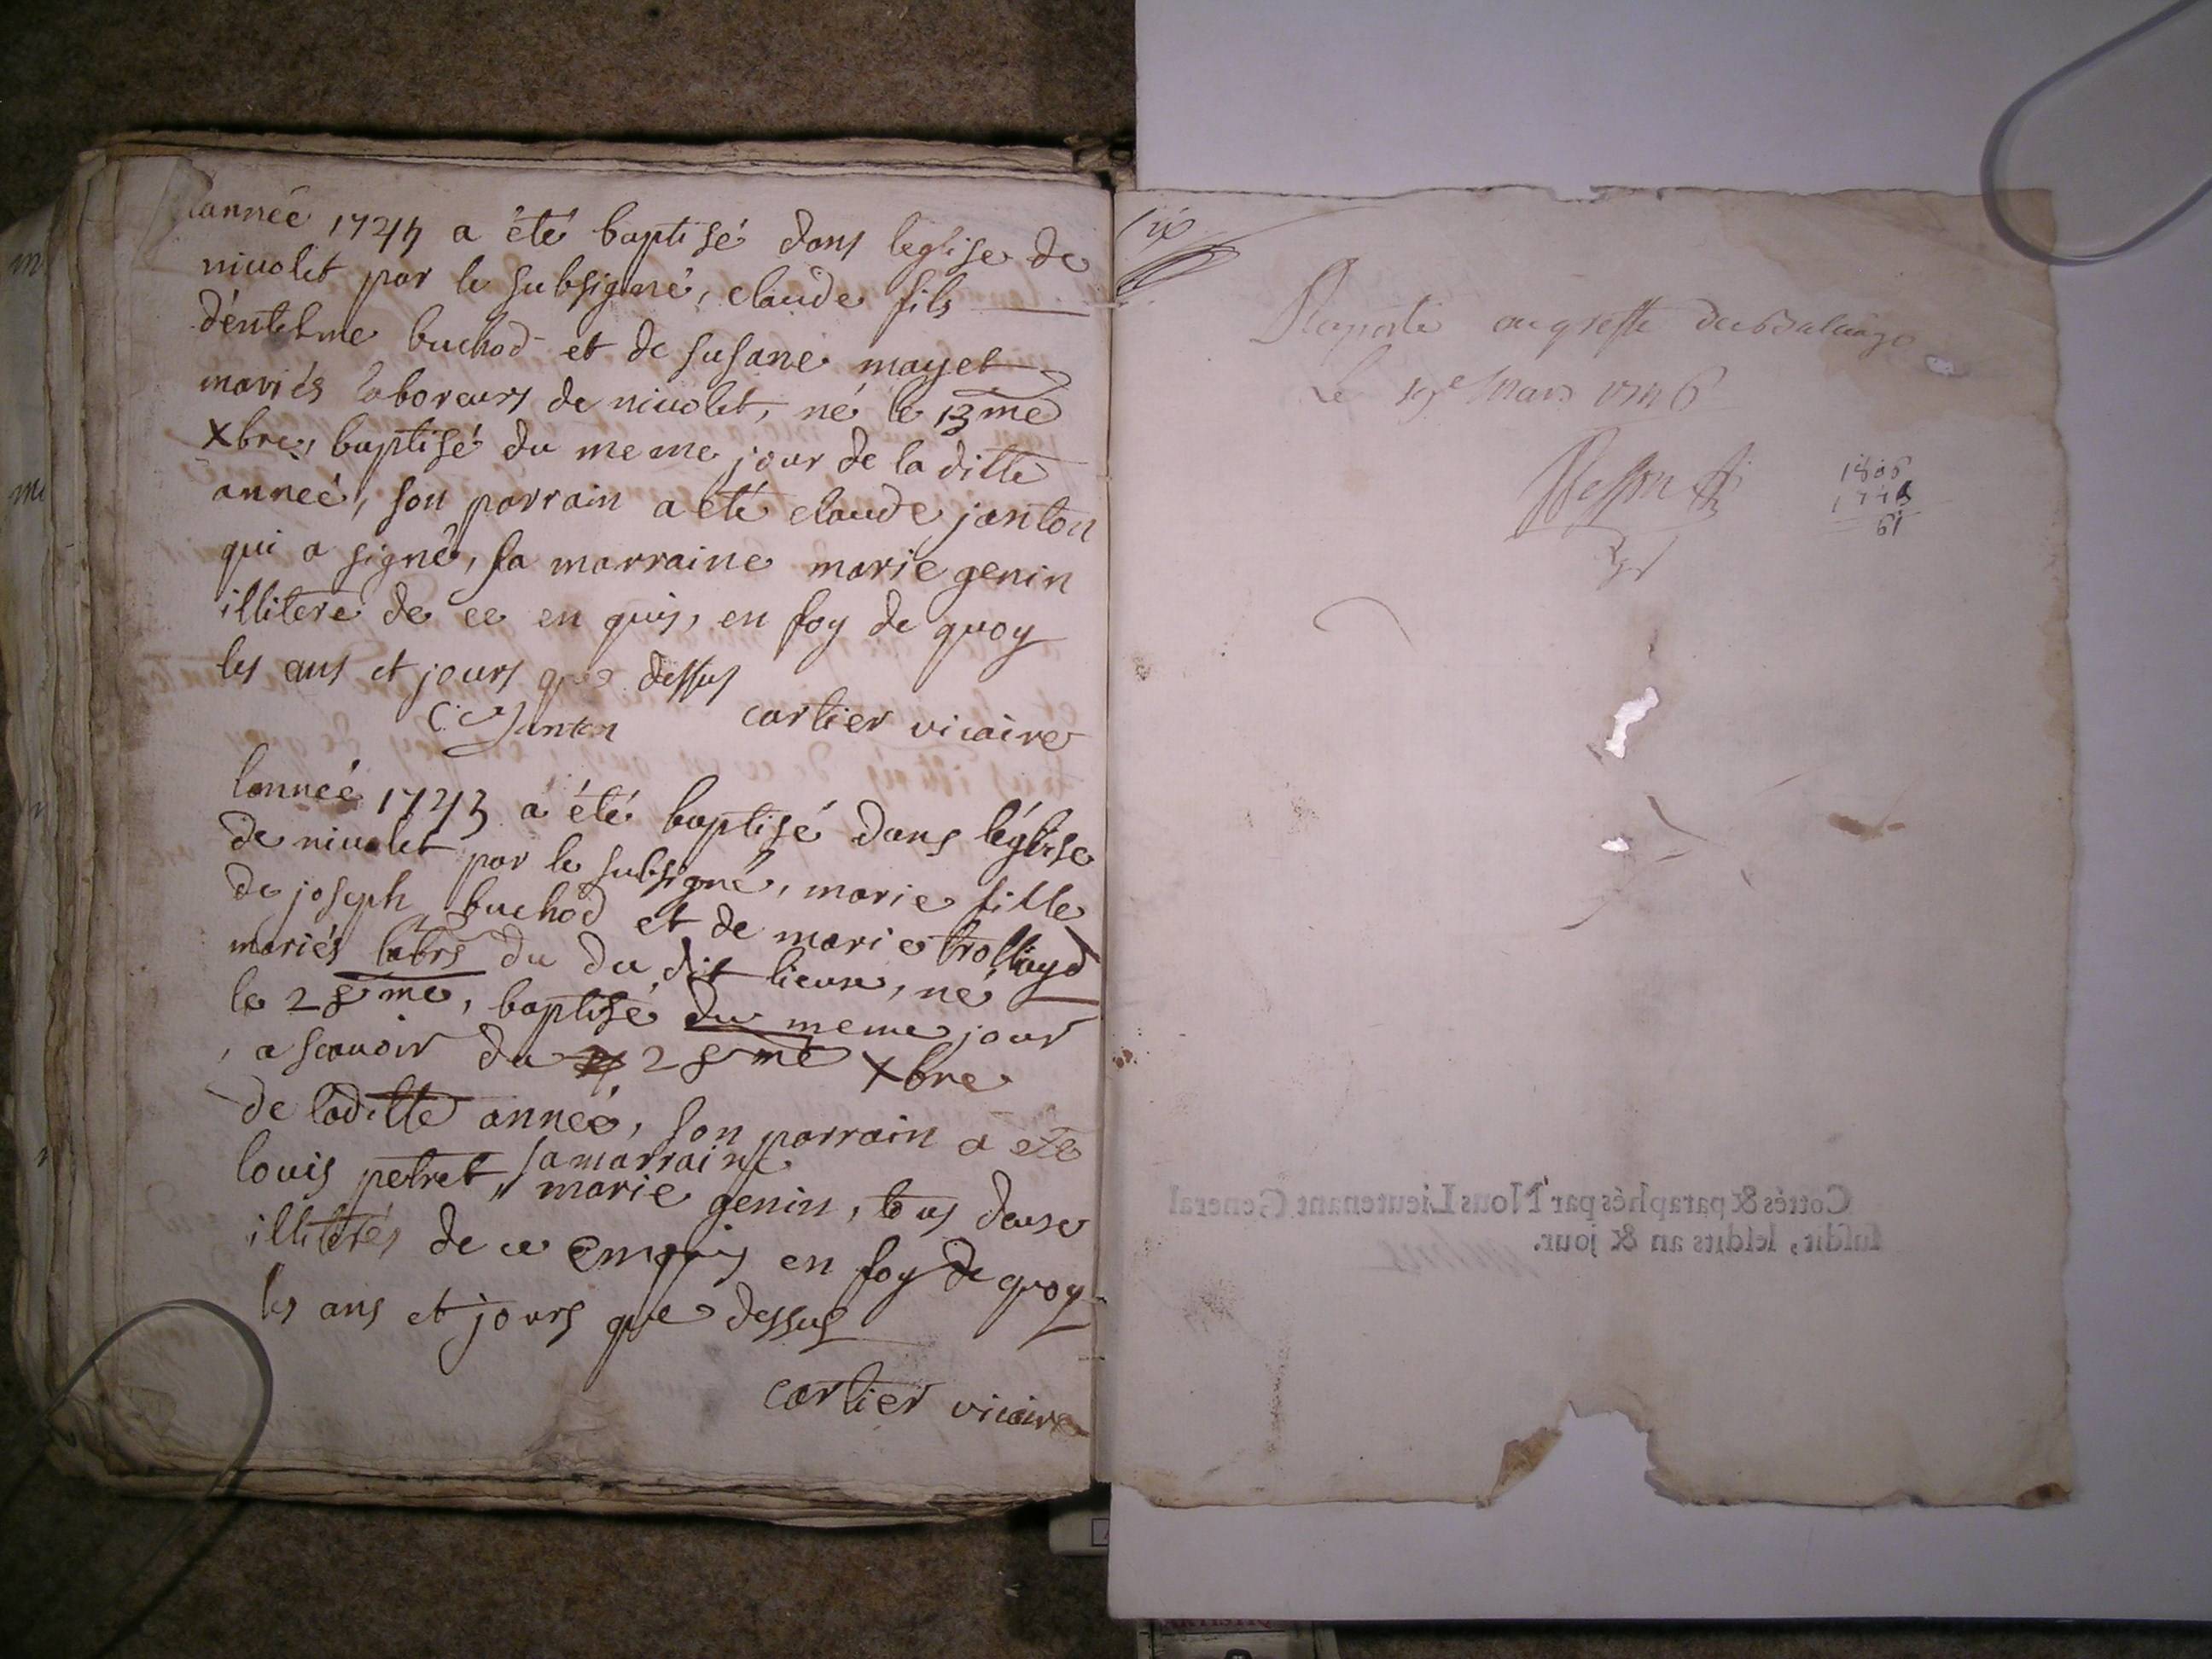 lannée 1744 a été baptisé dans leglise de
nivolet par le subsigné, claude fils
d'entelme buchod et de susane mayet
mariés laboreurs de nivolet, né le 13me
Xbre, baptisé du meme jour de la ditte
anneé, son parrain a eté claude janton
qui a signé, sa marraine marie genin
illitere de ce en quis, en foy de quoy
les ans et jours que dessus
C. Janton cartier vicaire
lanneé 1743 a été baptisé dans léglise
de nivolet par le subsigné, marie fille
de joseph buchod et de marie trolliayd
mariés labrs du du dit lieux, né
le 28me, baptisé du meme jour
, a scavoir du 28me Xbre
de laditte anneé, son parrain a ete
louis petret, sa marraine
marie genin, tous deux
illiterés de ce enquis en foy de quoy
les ans et jours que dessus
cartier vicaire
au greffe
Le 19e Mars 1746
1806
1745
61
Cottés & paraphés par Nous Lieutenant General
susdit, lesdits an & jour.